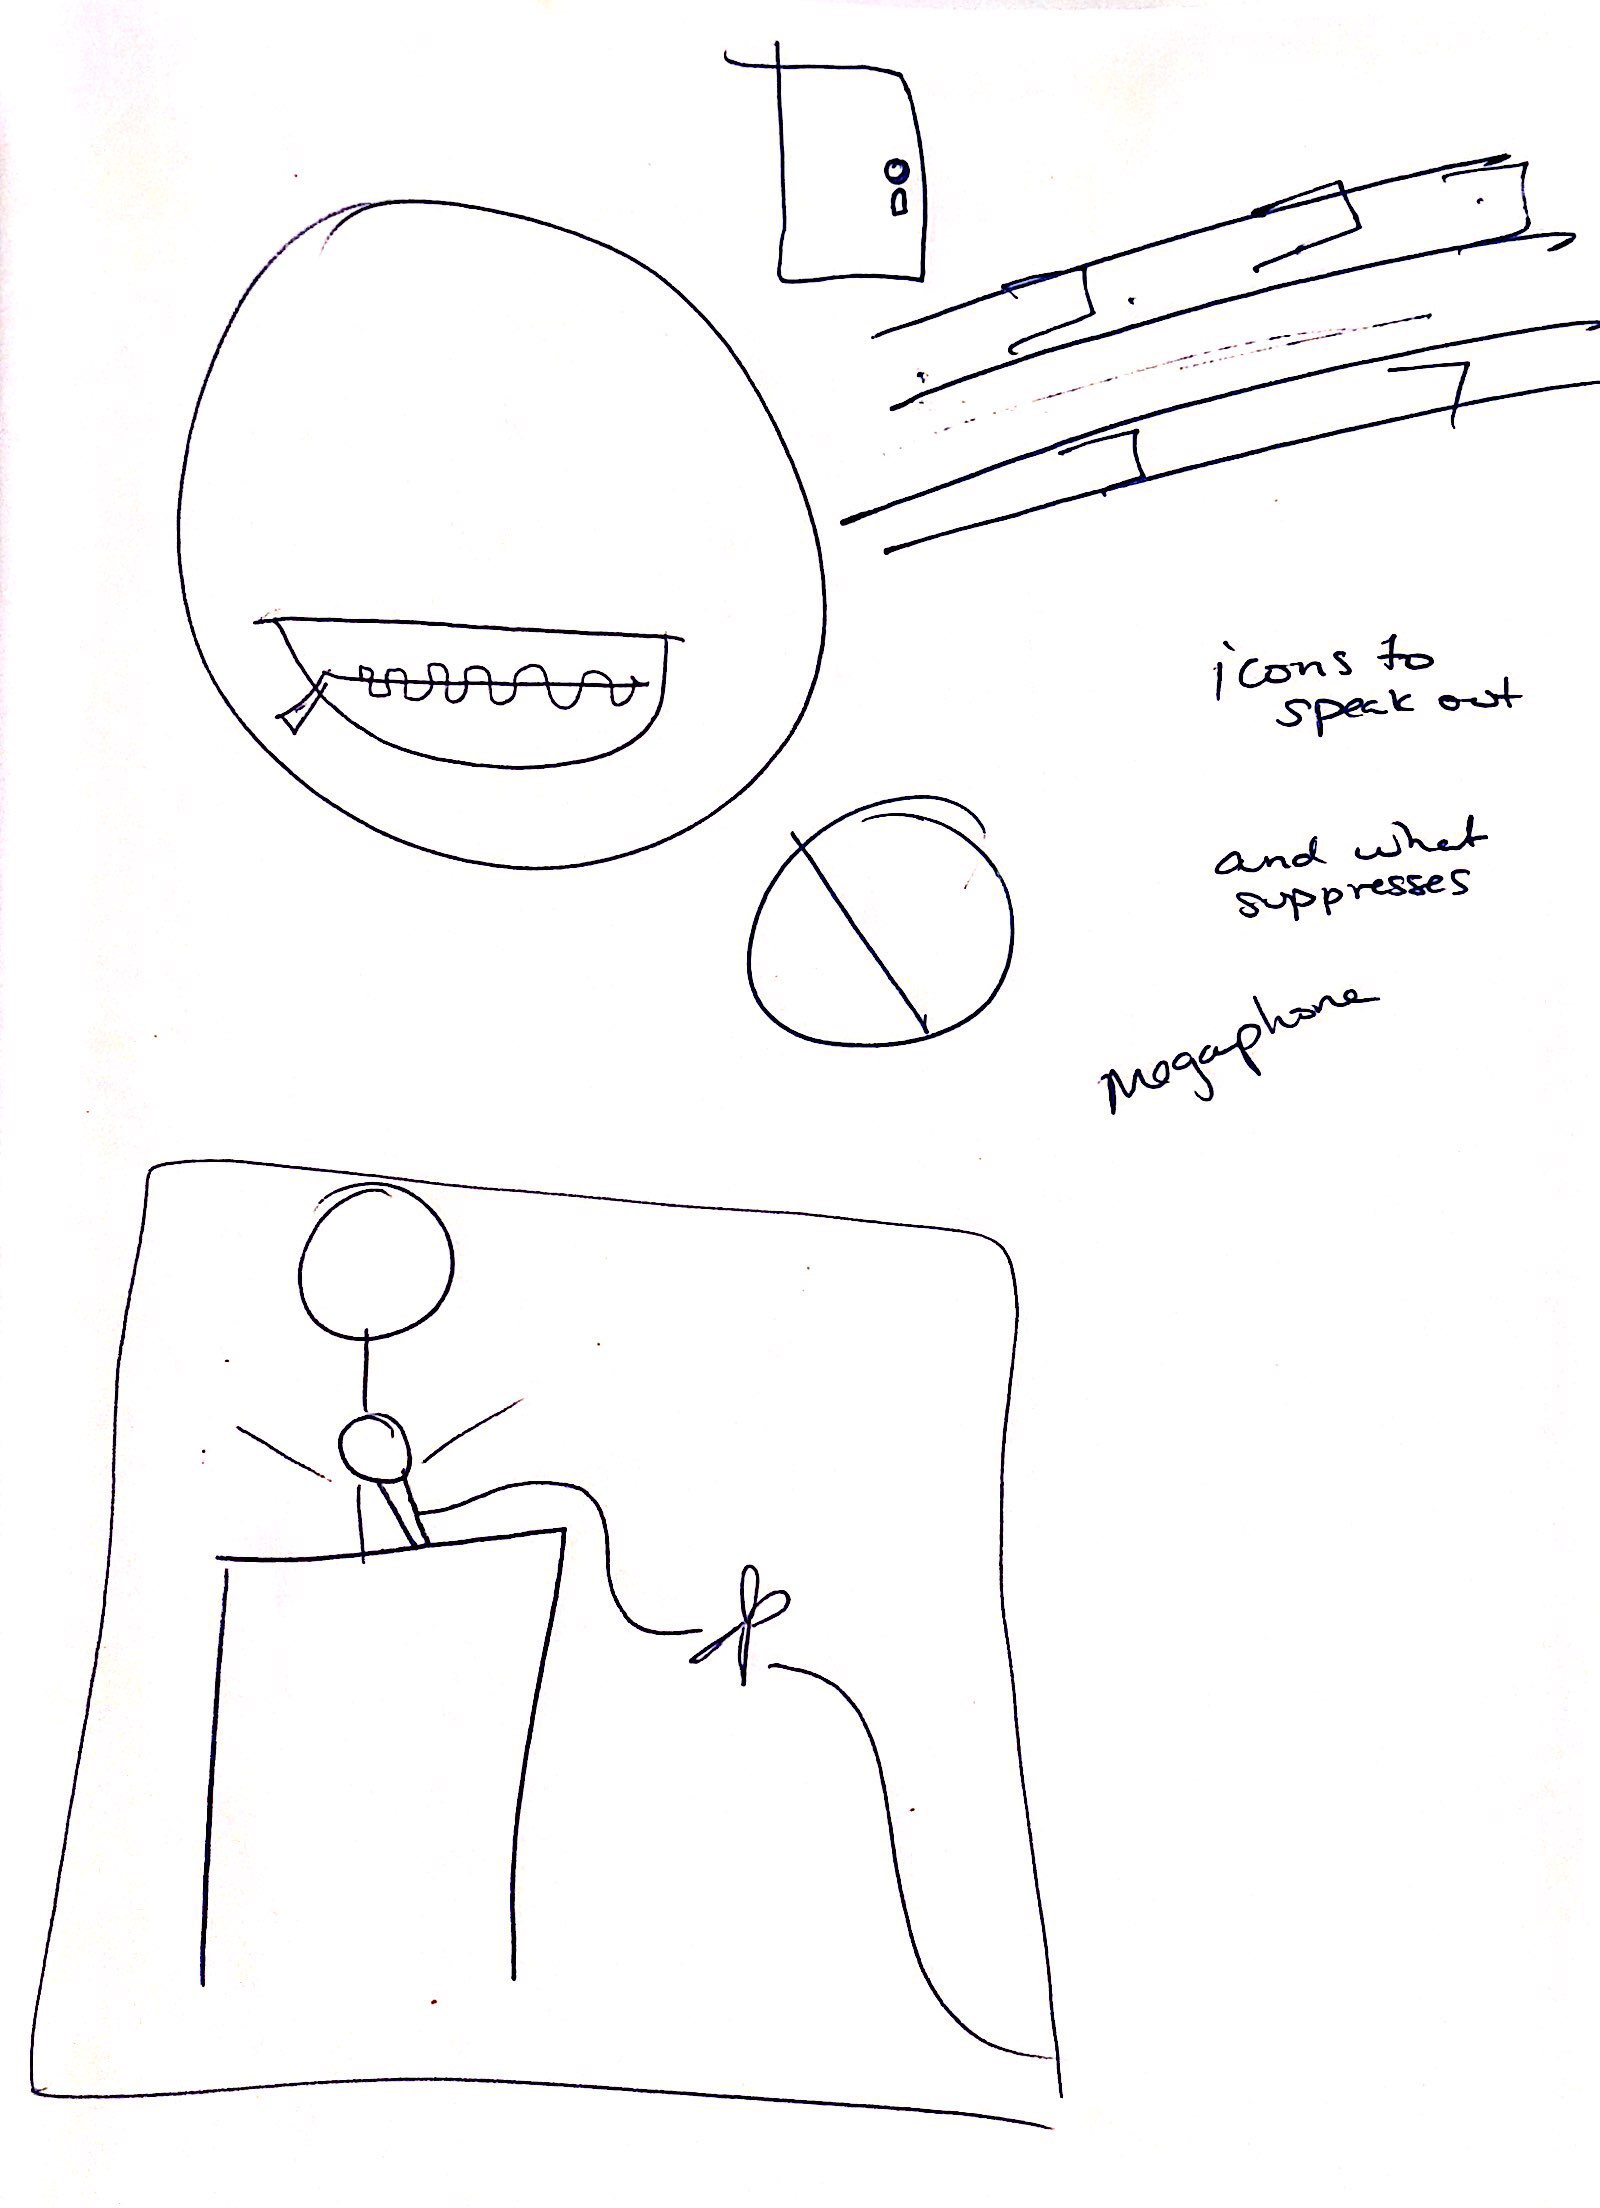 icons to
speak out
and what
suppresses
megaphone